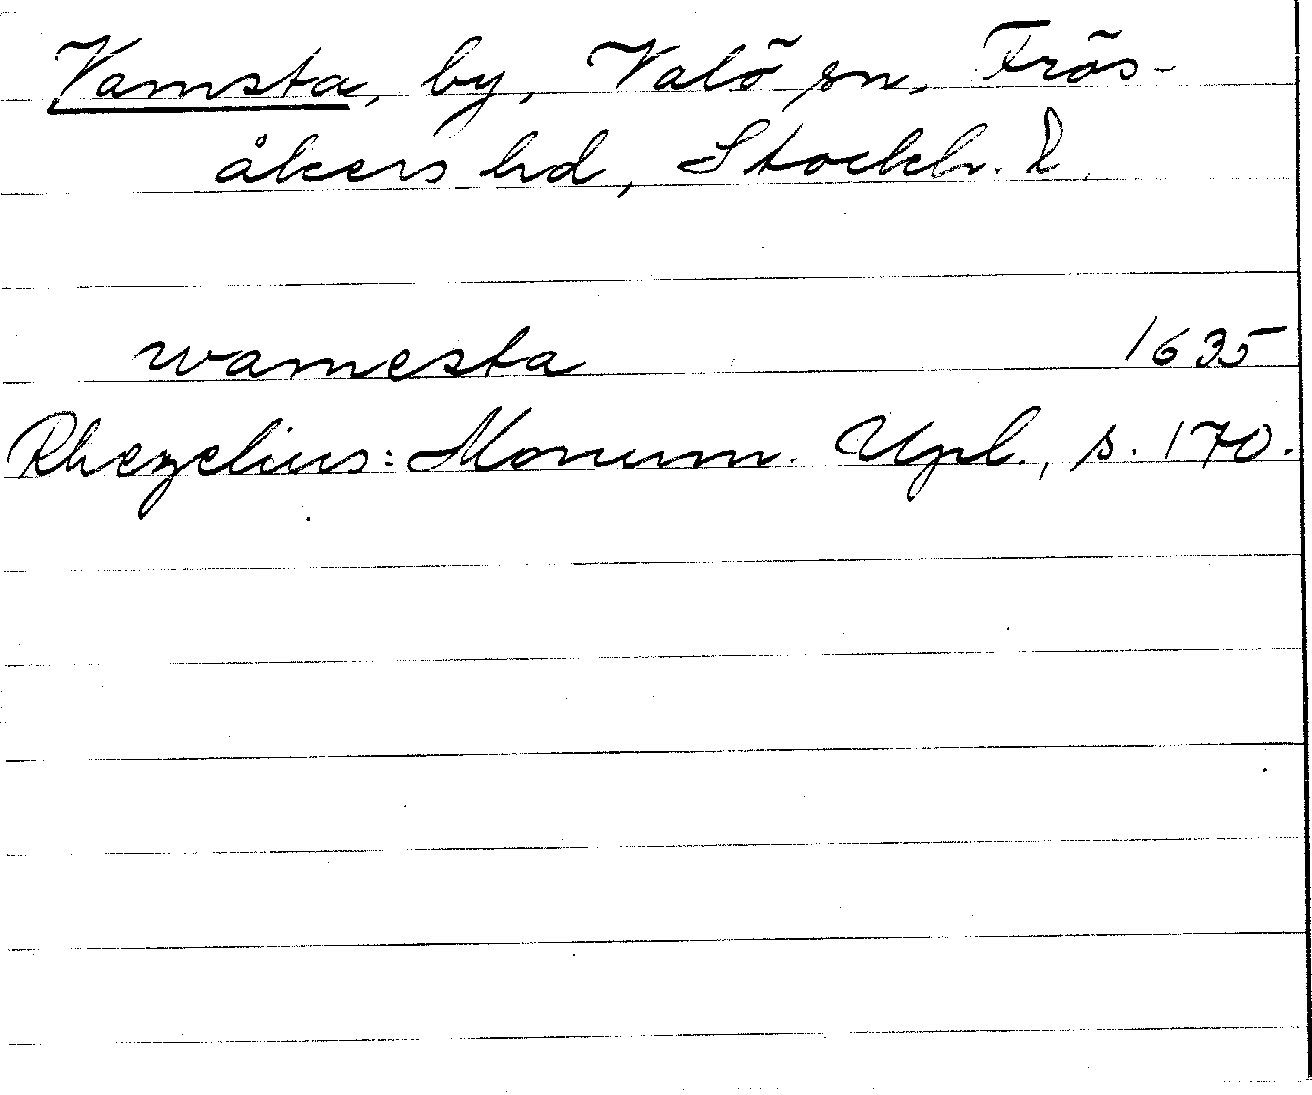 Vamsta, by, Valö sn, Frös-
åkers hd, Stockh. l.
wamesta 1635
Rhezelius: Monum. Upl., s. 170.